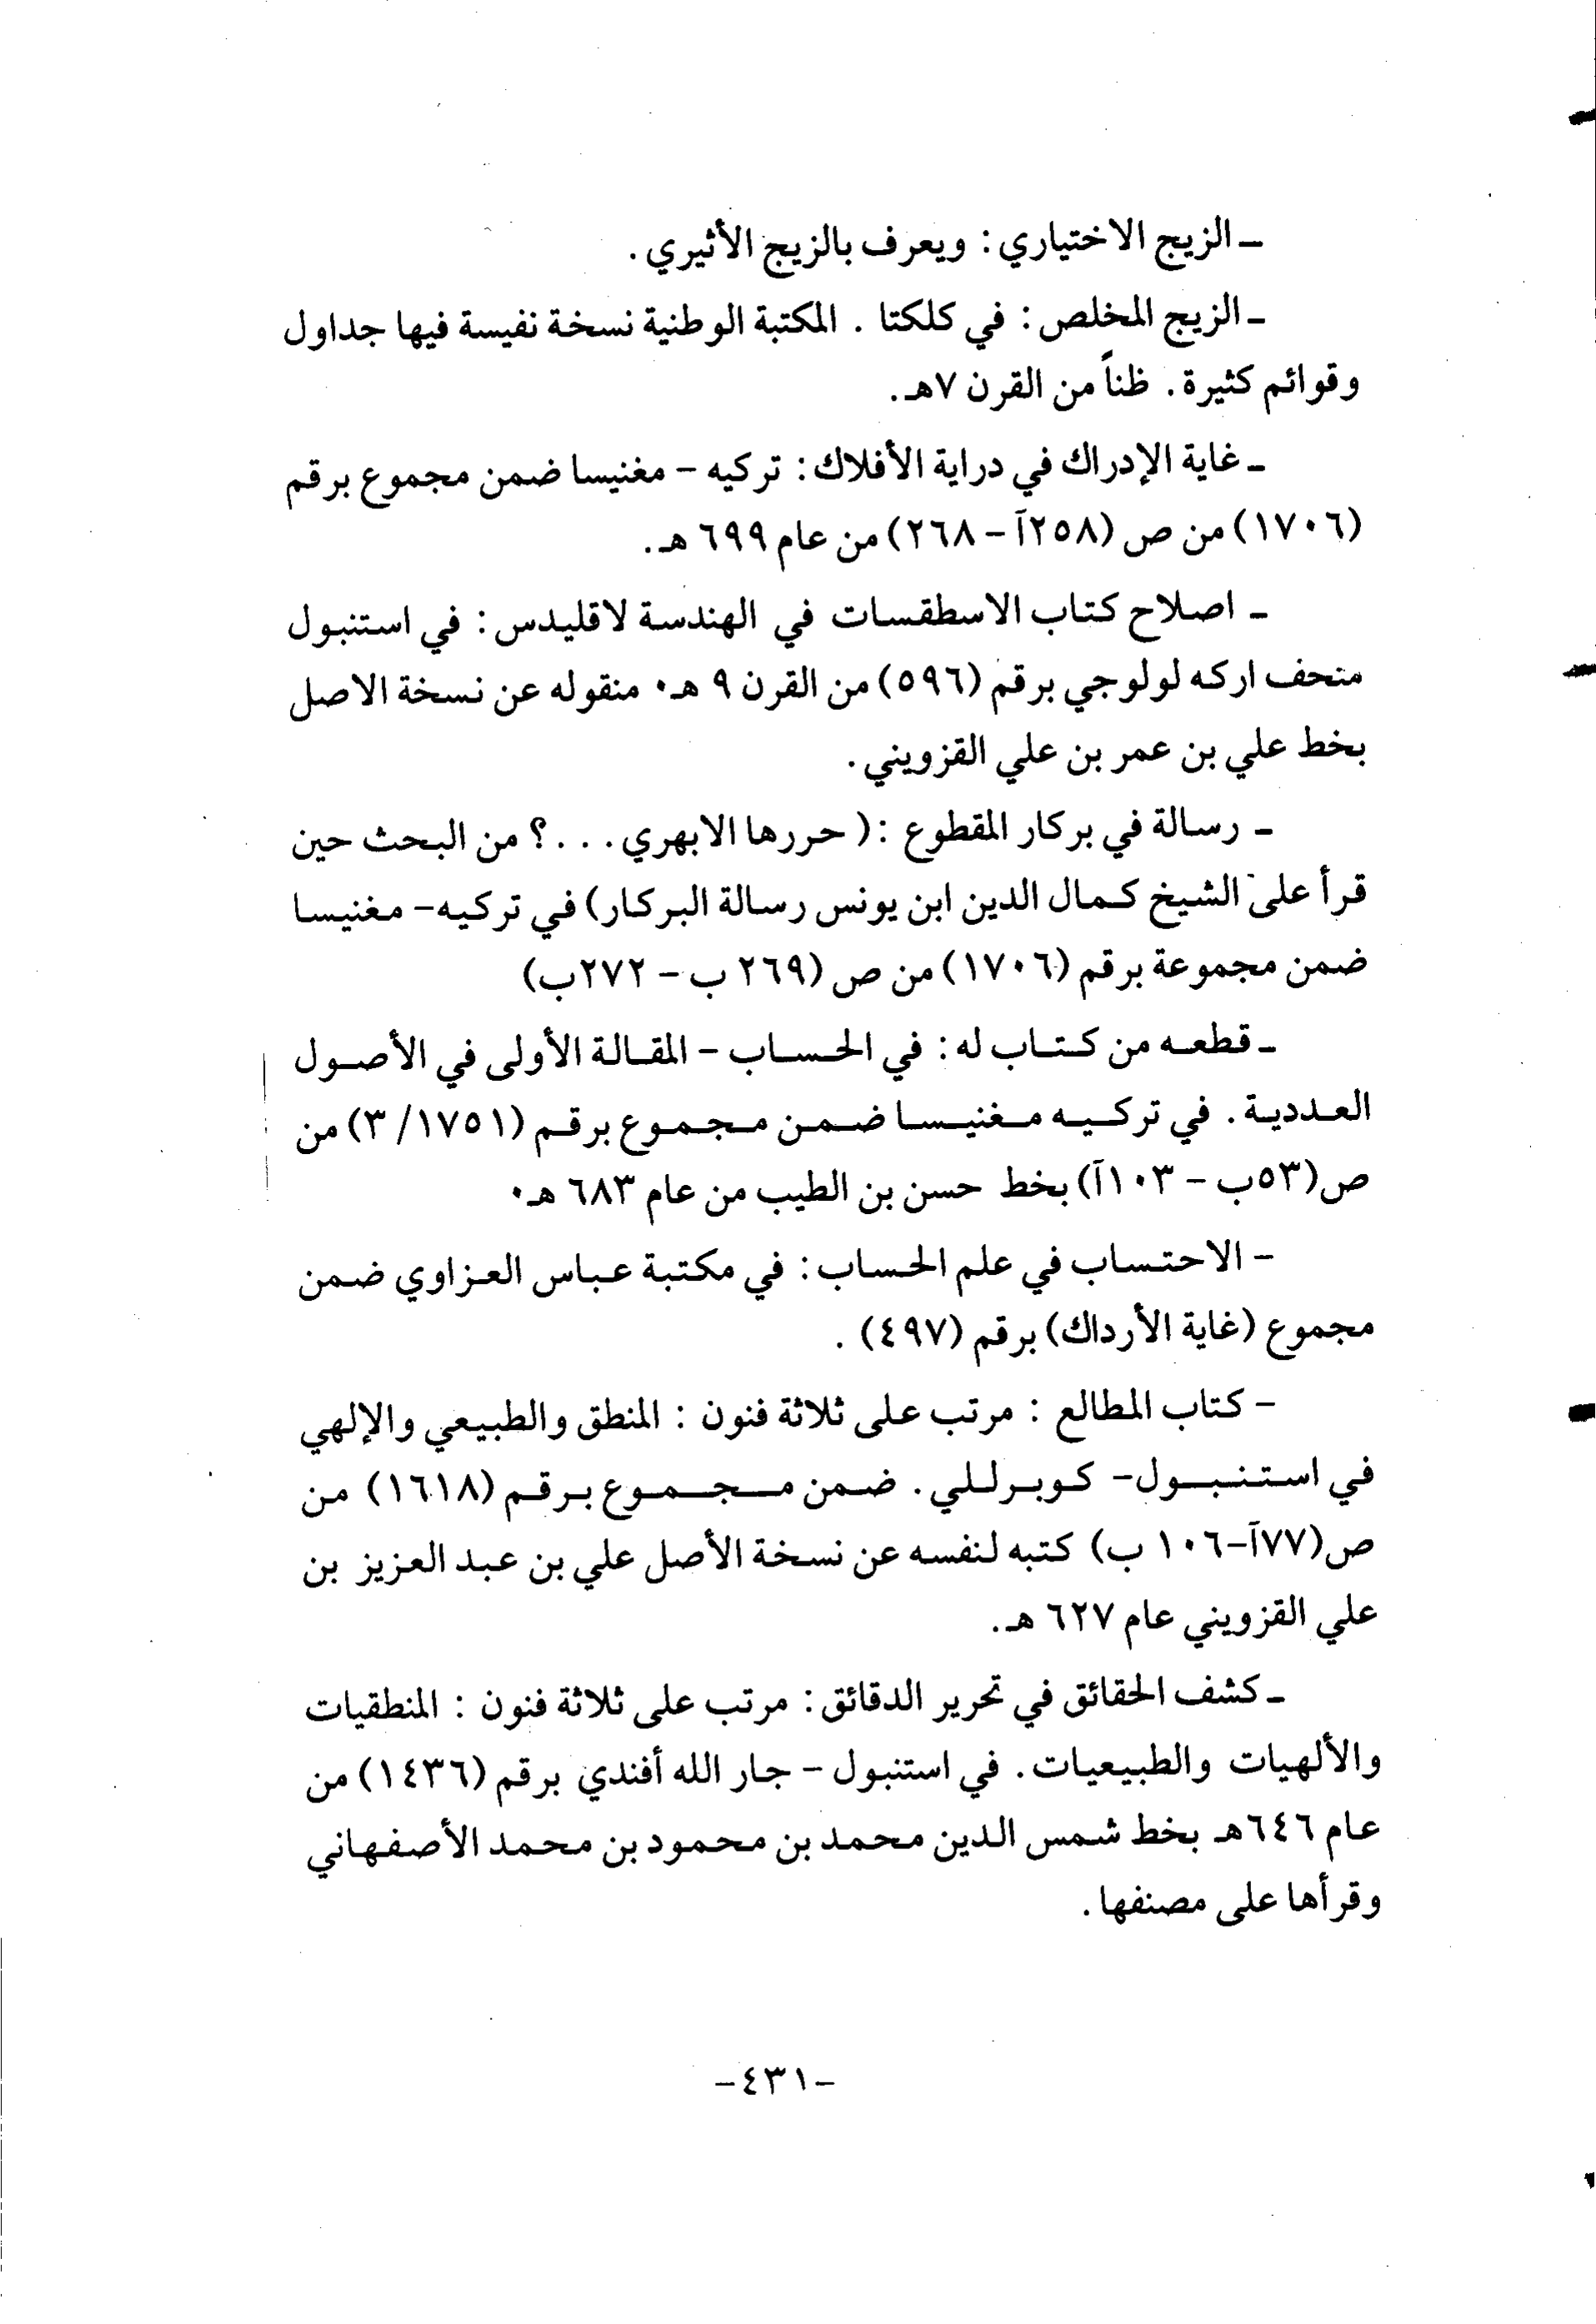 ـ الزيج الاختياري : ويعرف بالزيج الأثيري .
ـ الزيج المخلص : في كلكتا . المكتبة الوطنية نسخة نفيسة فيها جداول
وقوائم كثيرة . ظناً من القرن ٧هـ .
ـ غاية الإدراك في دراية الأفلاك : تركيه – مغنيسا ضمن مجموع برقم
(١٧٠٦) من ص (٢٥٨آ – ٢٦٨) من عام ٦٩٩ هـ .
ـ اصلاح كتاب الاسطقسات في الهندسة لاقليدس : في استنبول
متحف اركه لولوجي برقم (٥٩٦) من القرن ٩ هـ٠ منقوله عن نسخة الاصل
بخط علي بن عمر بن علي القزويني .
ـ رسالة في بركار المقطوع : ( حررها الابهري . . . ؟ من البحث حين
قرأ على الشيخ كمال الدين ابن يونس رسالة البركار) في تركيه– مغنيسا
ضمن مجموعة برقم (١٧٠٦) من ص (٢٦٩ ب – ٢٧٢ب)
ـ قطعه من كتاب له : في الحساب – المقالة الأولى في الأصول
العددية . في تركيه مغنيسا ضمن مجموع برقم (١٧٥١/ ٣) من
ص(٥٣ب – ١٠٣آ) بخط حسن بن الطيب من عام ٦٨٣ هـ٠
– الاحتساب في علم الحساب : في مكتبة عباس العزاوي ضمن
مجموع (غاية الأرداك) برقم (٤٩٧) .
– كتاب المطالع : مرتب على ثلاثة فنون : المنطق والطبيعي والإلهي
في استنبول– كوبرللي . ضمن مجموع برقم (١٦١٨) من
ص(٧٧آ–١٠٦ ب) كتبه لنفسه عن نسخة الأصل علي بن عبد العزيز بن
علي القزويني عام ٦٢٧ هـ .
ـ كشف الحقائق في تحرير الدقائق : مرتب على ثلاثة فنون : المنطقيات
والألهيات والطبيعيات . في استنبول – جار الله أفندي برقم (١٤٣٦) من
عام ٦٤٦هـ بخط شمس الدين محمد بن محمود بن محمد الأصفهاني
وقرأها على مصنفها .
–٤٣١–